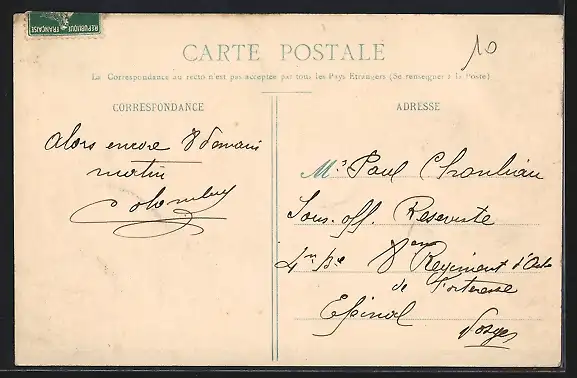 REPUBLIQUE FRANÇAISE
10
CARTE POSTALE
La Correspondance au recto n'est pas acceptée par tous les Pays Etrangers (Se renseigner à la Poste)
CORRESPONDANCE
Alors encore 8 demain
matin
ADRESSE
Mr Paul
Sous. off. Reserviste
8ème Regiment d'
de Forteresse
Epinal
Vosges